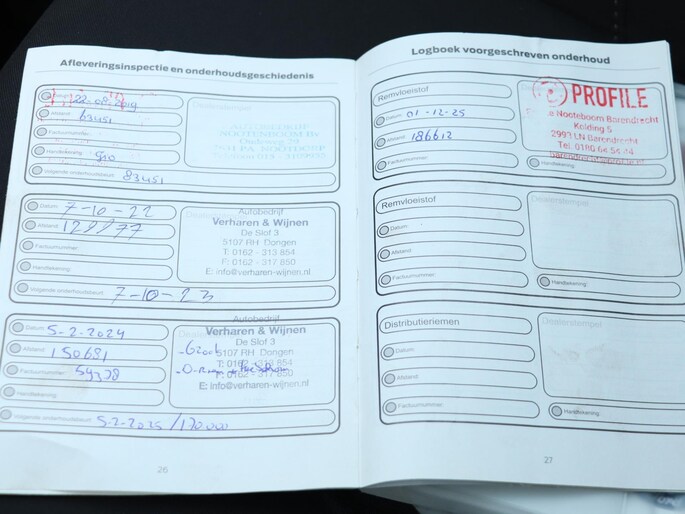 Afleveringsinspectie en onderhoudsgeschiedenis
22-08-2019
Afstand: 63451
Factuurnummer:
Handtekening:
Volgende onderhoudsbeurt: 83451
NOOTEBOOM BV
Datum: 7-10-22
Afstand:
Factuurnummer:
Handtekening:
Volgende onderhoudsbeurt: 7-10-23
Autobedrijf
Verharen & Wijnen
De Slof 3
5107 RH Dongen
T: 0162 - 313 854
F: 0162 - 317 850
E: info@verharen-wijnen.nl
Datum: 5-2-2024
Afstand: 150681
Factuurnummer: 59378
Handtekening:
Volgende onderhoudsbeurt: 5-2-2025 / 170.000
Autobedrijf
Verharen & Wijnen
De Slof 3
5107 RH Dongen
T: 0162 - 313 854
F: 0162 - 317 850
E: info@verharen-wijnen.nl
26
Logboek voorgeschreven onderhoud
Remvloeistof
Datum: 01-12-25
Afstand: 186612
Factuurnummer:
PROFILE
Nooteboom Barendrecht
Kolding 5
2993 LN Barendrecht
Handtekening:
Remvloeistof
Datum:
Afstand:
Factuurnummer:
Dealerstempel
Handtekening:
Distributieriemen
Datum:
Afstand:
Factuurnummer:
Dealerstempel
Handtekening:
27